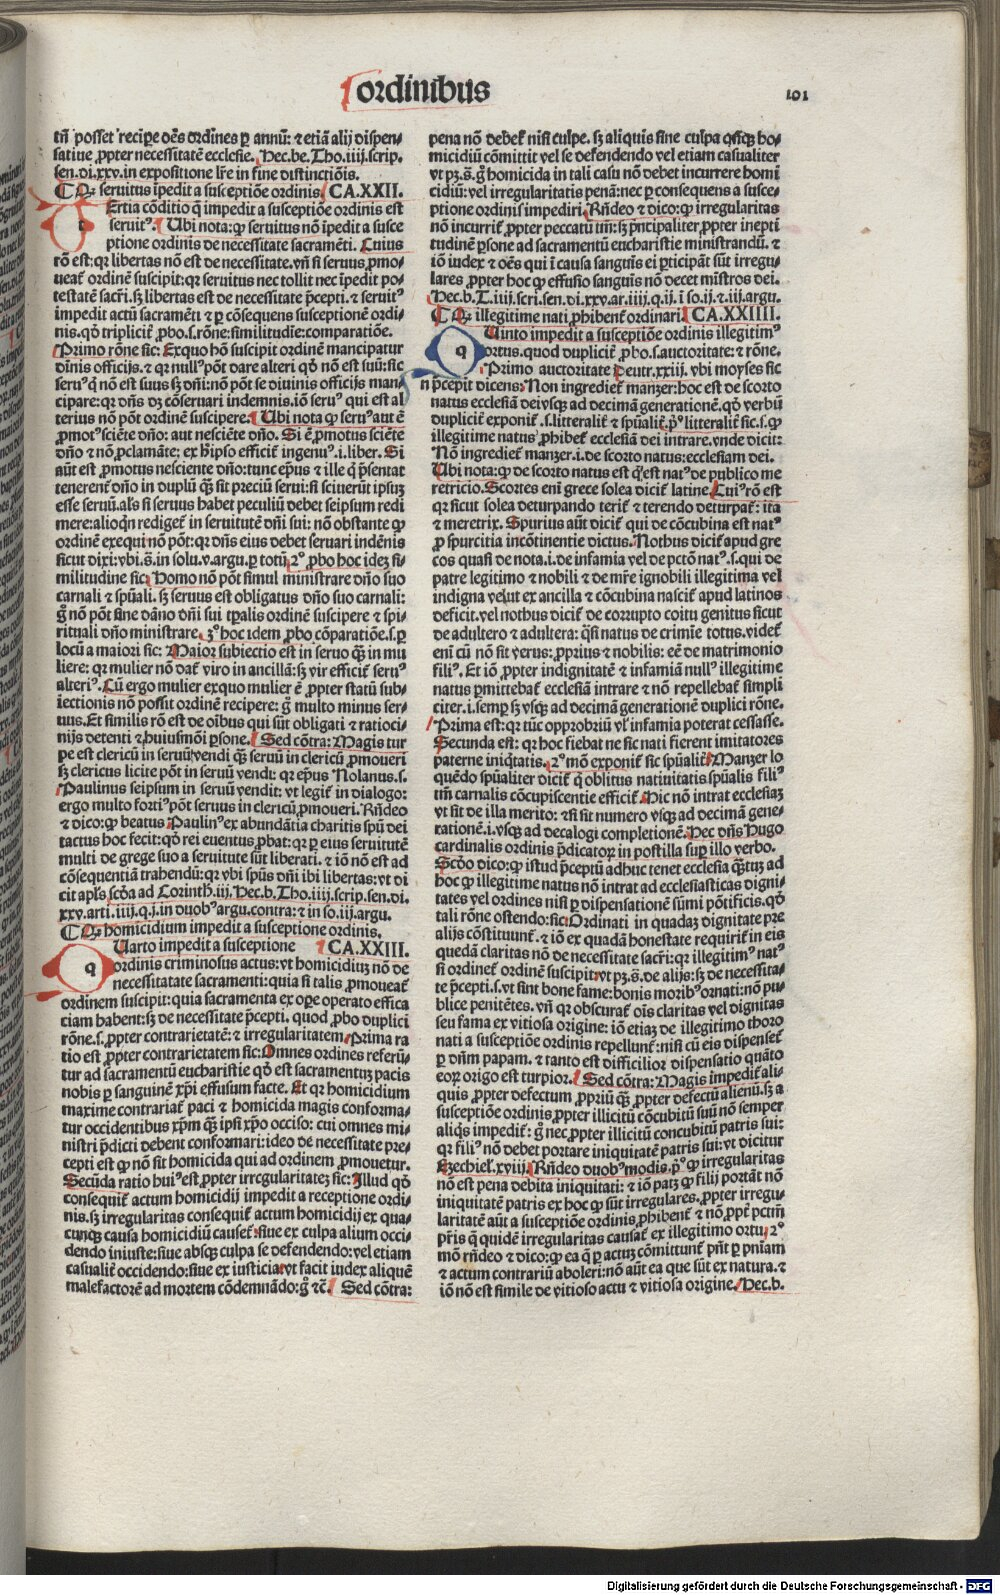 ordinibus
101
tñ posset recipe oẽs ordines ꝑ annũ: ⁊ etiã alij dispen-
satiue ꝓpter necessitatẽ ecclesie. Hec.be.Tho.iiij.scrip.
sen.di.xxv.in expositione lr̃e in fine distinctiõis.
¶ Qꝫ seruitus ĩpedit a susceptiõe ordinis. CA.XXII.
Ertia cõditio q̃ impedit a susceptiõe ordinis est
t
seruitꝰ. Ubi nota: ꝙ seruitus nõ ĩpedit a susce
ptione ordinis de necessitate sacramẽti. Cuius
rõ est: qꝛ libertas nõ est de necessitate. vñ si seruus ꝓmo-
ueat᷑ ordinẽ suscipit: qꝛ seruitus nec tollit nec ĩpedit po-
testatẽ sacr̃i. sꝫ libertas est de necessitate p̃cepti. ⁊ seruitꝰ
impedit actũ sacramẽti ⁊ ꝑ cõsequens susceptionẽ ordi-
nis. qð triplicit᷑ ꝓbo.s.rõne: similitudie: comparatiõe.
Primo rõne sic: Ex quo hõ suscipit ordinẽ mancipatur
diñis officijs. ⁊ qꝛ nullꝰ põt dare alteri qð nõ est suũ: sic
seruꝰ q̃ nõ est suus sꝫ dñi: nõ põt se diuinis officijs man-
cipare: qꝛ dñs dꝫ cõseruari indemnis. iõ seruꝰ qui est al
terius nõ põt ordinẽ suscipere. Ubi nota ꝙ seruꝰ aut ẽ
ꝓmotꝰ sciẽte dño: aut nesciẽte dño. Si ẽ ꝓmotus sciẽte
dño ⁊ nõ ꝓclamãte: ex h̓ ipso efficit᷑ ingenuꝰ.i.liber. Si
aũt est ꝓmotus nesciente dño: tunc ep̃us ⁊ ille q̃ p̃sentat
tenerent᷑ dño in duplũ q̃ꝫ sit preciũ serui: si sciuerũt ipsuꝫ
esse seruũ. als̃ si seruus habet peculiũ debet seipsum redi
mere: alioqñ rediget᷑ in seruitutẽ dñi sui: nõ obstante ꝙ
ordinẽ exequi nõ põt: qꝛ dñs eius debet seruari indẽnis
sicut dixi: vbi.s̃.in solu.v.argu.ꝑ totũ. 2° ꝓbo hoc ideꝫ si-
militudine sic: Homo nõ põt simul ministrare dño suo
carnali ⁊ sp̃uali. sꝫ seruus est obligatus dño suo carnali:
g̃ nõ põt sine dãno dñi sui tp̃alis ordinẽ suscipere ⁊ spi-
rituali dño ministrare. 3° hoc idem ꝓbo cõparatiõe.s.ꝑ
locũ a maiori sic: Maior subiectio est in seruo q̃ꝫ in mu
liere: qꝛ mulier nõ dat᷑ viro in ancillã: sꝫ vir efficit᷑ seruꝰ
alteriꝰ. Cũ ergo mulier ex quo mulier ẽ ꝓpter statũ sub-
iectionis nõ possit ordinẽ recipere: g̃ multo minus ser-
uus. Et similis rõ est de oĩbus qui sũt obligati ⁊ ratioci-
nijs detenti ⁊ huiusmõi ꝑsone. Sed cõtra: Magis tur
pe est clericũ in seruũ vendi q̃ꝫ seruũ in clericũ ꝓmoueri
sꝫ clericus licite põt in seruũ vendi: qꝛ ep̃us Nolanus.s.
Paulinus seipsum in seruũ vendit: vt legit᷑ in dialogo:
ergo multo fortiꝰ põt seruus in clericũ ꝓmoueri. Rñdeo
⁊ dico: ꝙ beatus Paulinꝰ ex abundãtia charitis sp̃ũ dei
tactus hoc fecit: qð rei euentus ꝓbat: qꝛ ꝑ eius seruitutẽ
multi de grege suo a seruitute sũt liberati. ⁊ iõ nõ est ad
cõsequentiam trahendũ: qꝛ vbi sp̃us dñi ibi libertas: vt di
cit apl̃s scd̃a ad Corinth.iij. Hec.b.Tho.iiij.scrip.sen.di.
xxv.arti.iiij.q.j.in duobꝰ argu.contra: ⁊ in so.iij.argu.
¶ Qꝫ homicidium impedit a susceptione ordinis.
Uarto impedit a susceptione CA.XXIII.
q
ordinis criminosus actus: vt homicidiuꝫ nõ de
necessitatate sacramenti: quia si talis ꝓmoueat᷑
ordinem suscipit: quia sacramenta ex oꝑe operato effica
ciam habent: sꝫ de necessitate p̃cepti. quod ꝓbo duplici
rõne.s.ꝓpter contrarietatẽ: ⁊ irregularitatem. Prima ra
tio est ꝓpter contrarietatem sic: Omnes ordines referũ-
tur ad sacramentũ eucharistie qð est sacramentuꝫ pacis
nobis ꝑ sanguinẽ xp̃i effusum facte. Et qꝛ homicidium
maxime contrariat᷑ paci ⁊ homicida magis conforma-
tur occidentibus xp̃m q̃ꝫ ipsi xp̃o occiso: cui omnes mi-
nistri p̃dicti debent conformari: ideo de necessitate pre-
cepti est ꝙ nõ sit homicida qui ad ordinem ꝓmouetur.
Secũda ratio huiꝰ est ꝓpter irregularitateꝫ sic: Illud qð
consequit᷑ actum homicidij impedit a receptione ordi-
nis. sꝫ irregularitas consequit᷑ actum homicidij ex qua-
cunqꝫ causa homicidiũ causet᷑: siue ex culpa alium occi-
dendo iniuste: siue absqꝫ culpa se defendendo: vel etiam
casualit᷑ occidendo: siue ex iusticia: vt facit iudex aliquẽ
malefactorẽ ad mortem cõdemnãdo: g̃ ⁊c̃. Sed cõtra:
pena nõ debet᷑ nisi culpe. sꝫ aliquis sine culpa qñqꝫ ho-
micidiũ cõmittit vel se defendendo vel etiam casualiter
vt pꝫ.s̃. g̃ homicida in tali casu nõ debet incurrere homi
cidiũ: vel irregularitatis penã: nec ꝑ consequens a susce-
ptione ordinis impediri. Rñdeo ⁊ dico: ꝙ irregularitas
nõ incurrit᷑ ꝓpter peccatũ tm̃: sꝫ p̃ncipaliter ꝓpter inepti
tudinẽ ꝑsone ad sacramentũ eucharistie ministrandũ. ⁊
iõ iudex ⁊ oẽs qui ĩ causa sanguĩs ei ꝑticipãt sũt irregu-
lares ꝓpter hoc ꝙ effusio sanguĩs nõ decet mĩstros dei.
Hec.b.T.iiij.scri.sen.di.xxv.ar.iiij.q.ij.ĩ so.ij.⁊.iij.argu.
¶ Qꝫ illegitime nati ꝓhibent᷑ ordinari. CA.XXIIII.
Uinto impedit a susceptiõe ordinis illegitimꝰ
q
ortus. quod duplicit᷑ ꝓbo.s.auctoritate: ⁊ rõne.
Primo auctoritate Deutr.xxiij. vbi moyses sic
p̃cepit dicens: Non ingrediet᷑ manzer: hoc est de scorto
natus ecclesiã dei vsqꝫ ad decimã generationẽ. qð verbũ
duplicit᷑ exponit᷑.s.litteralit᷑ ⁊ sp̃ualit᷑. p° litteralit᷑ sic.s.ꝙ
illegitime natus ꝓhibet᷑ ecclesiã dei intrare. vnde dicit:
Nõ ingrediet᷑ manzer.i.de scorto natus: ecclesiam dei.
Ubi nota: ꝙ de scorto natus est q̃ est natꝰ de publico me
retricio. Scortes eni grece solea dicit᷑ latine. Cuiꝰ rõ est
qꝛ sicut solea deturpando terit᷑ ⁊ terendo deturpat᷑: ita
⁊ meretrix. Spurius aũt dicit᷑ qui de cõcubina est natꝰ
ꝓ spurcitia incõtinentie dictus. Nothus dicit᷑ apud gre
cos quasi de nota.i.de infamia vel de pctõ natꝰ.s.qui de
patre legitimo ⁊ nobili ⁊ de mr̃e ignobili illegitima vel
indigna velut ex ancilla ⁊ cõcubina nascit᷑ apud latinos
deficit. vel nothus dicit᷑ de corrupto coitu genitus sicut
de adultero ⁊ adultera: q̃si natus de crimie totus. videt᷑
eni cũ nõ sit verus: ꝓprius ⁊ nobilis: eẽ de matrimonio
filiꝰ. Et iõ ꝓpter indignitatẽ ⁊ infamiã nullꝰ illegitime
natus ꝑmittebat᷑ ecclesiã intrare ⁊ nõ repellebat᷑ simpli
citer.i.semꝑ sꝫ vsqꝫ ad decimã generationẽ duplici rõne.
Prima est: qꝛ tũc opprobriũ vl̓ infamia poterat cessasse.
Secunda est: qꝛ hoc fiebat ne sic nati fierent imitatores
paterne iniq̃tatis. 2° mõ exponit᷑ sic sp̃ualit᷑: Manzer lo
quẽdo sp̃ualiter dicit᷑ q̃ oblitus natiuitatis sp̃ualis filiꝰ
tm̃ carnalis cõcupiscentie efficit᷑. Hic nõ intrat ecclesiaꝫ
vt sit de illa merito: ⁊ si sit numero vsqꝫ ad decimã gene-
rationẽ.i.vsqꝫ ad decalogi completionẽ. Hec dñs Hugo
cardinalis ordinis p̃dicatoꝝ in postilla suꝑ illo verbo.
Scd̃o dico: ꝙ istud p̃ceptũ adhuc tenet ecclesia q̃ꝫtuꝫ ad
hoc ꝙ illegitime natus nõ intrat ad ecclesiasticas digni-
tates vel ordines nisi ꝑ dispensationẽ sũmi põtificis. qð
tali rõne ostendo: sic: Ordinati in quadaꝫ dignitate pre
alijs cõstituunt᷑. ⁊ iõ ex quadã honestate requirit᷑ in eis
quedã claritas nõ de necessitate sacr̃i: qꝛ illegitimꝰ nat᷑
si ordinet᷑ ordinẽ suscipit: vt pꝫ.s̃.de alijs: sꝫ de necessita-
te p̃cepti.s.vt sint bone fame: bonis moribꝰ ornati: nõ pu-
blice penitẽtes. vñ qꝛ obscurat᷑ oĩs claritas vel dignitas
seu fama ex vitiosa origine: iõ etiaꝫ de illegitimo thoro
nati a susceptiõe ordinis repellunt᷑: nisi cũ eis dispenset᷑
ꝑ dñm papam. ⁊ tanto est difficilior dispensatio quãto
eoꝝ origo est turpior. Sed cõtra: Magis impedit᷑ ali-
quis ꝓpter defectum ꝓpriũ q̃ꝫ ꝓpter defectũ alienũ. sꝫ a
susceptiõe ordinis ꝓpter illicitũ cõcubitũ suũ nõ semper
aliq̃s impedit᷑: g̃ nec ꝓpter illicitũ concubitũ patris sui:
qꝛ filiꝰ nõ debet portare iniquitatẽ patris sui: vt dicitur
Ezechiel.xviij. Rñdeo duobꝰ modis. p° ꝙ irregularitas
nõ est pena debita iniquitati: ⁊ iõ patꝫ ꝙ filij portãt nõ
iniquitatẽ patris ex hoc ꝙ sũt irregulares. ꝓpter irregu-
laritatẽ aũt a susceptiõe ordinis ꝓhibent᷑ ⁊ nõ ꝓpt᷑ pctm̃
pr̃is q̃ quidẽ irregularitas causat᷑ ex illegitimo ortu. 2°
mõ rñdeo ⁊ dico: ꝙ ea q̃ ꝑ actuꝫ cõmittunt᷑ pñt ꝑ pñiam
⁊ actum contrariũ aboleri: nõ aũt ea que sũt ex natura. ⁊
iõ nõ est simile de vitioso actu ⁊ vitiosa origine. Hec.b.
Digitalisierung gefördert durch die Deutsche Forschungsgemeinschaft - DFG